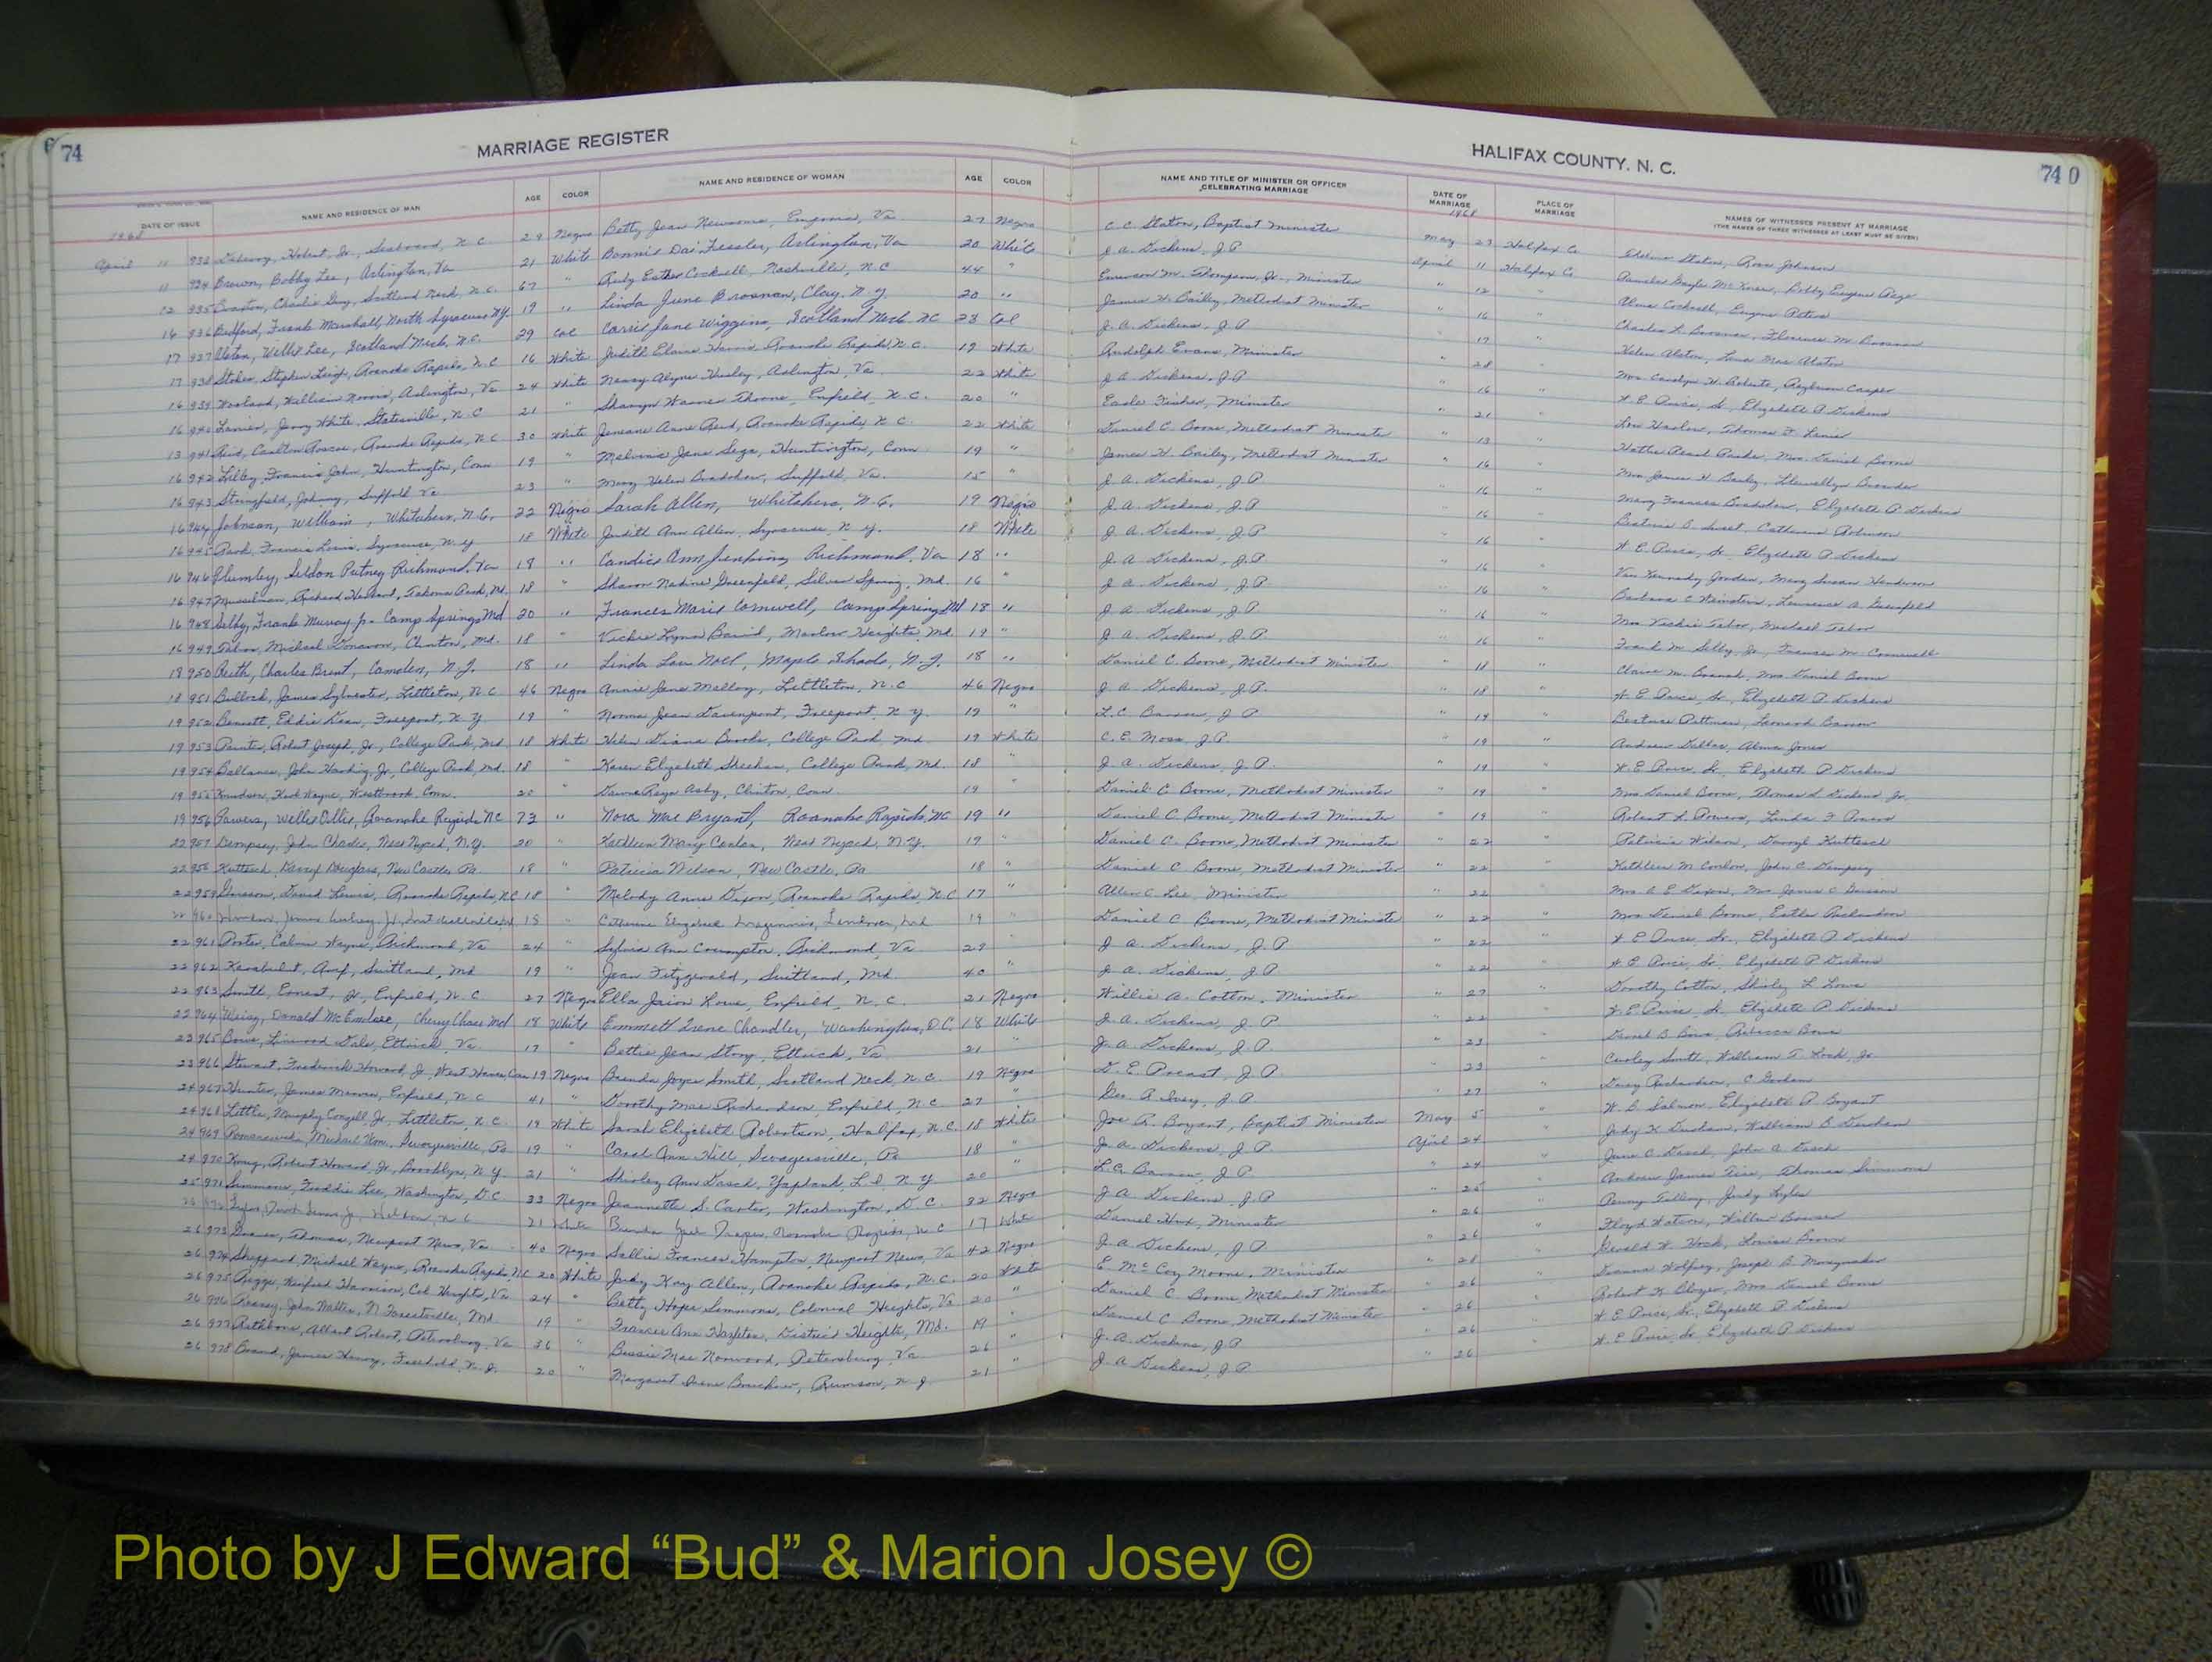 74
MARRIAGE REGISTER
HALIFAX COUNTY, N. C.
74 0
DATE OF ISSUE NAME AND RESIDENCE OF MAN AGE COLOR NAME AND RESIDENCE OF WOMAN AGE COLOR NAME AND TITLE OF MINISTER OR OFFICER CELEBRATING MARRIAGE DATE OF MARRIAGE PLACE OF MARRIAGE NAMES OF WITNESSES PRESENT AT MARRIAGE
(THE NAMES OF THREE WITNESSES AT LEAST MUST BE GIVEN)
1968 1968
April 11 Hobert, Jr, Seaboard, N C 29 Negro Betty Jean Newsome, Emporia, Va 27 Negro C. C. Staton, Baptist Minister May 23 Halifax Co Staton, Rosa Johnson
11 934 Brown, Bobby Lee, Arlington, Va 21 White Bonnie Dai Fessler, Arlington, Va 20 White J. A. Dickens, J P April 11 Halifax Co Pamela Gayle Bobby Eugene
12 935 Braxton, Charlie Guy, Scotland Neck, N. C. 67 " Ruby Esther Cockrell, Nashville, N C 44 " Emerson M. Thompson, Jr., Minister " 12 " Alma Cockrell, Eugene
16 936 Bedford, Frank Marshall, North Syracuse N.Y. 19 " Linda June Brosnan, Clay, N. Y. 20 " James H. Bailey, Methodist Minister " 16 " Charles L. Brosnan, Florence M. Brosnan
17 937 Alston, Willie Lee, Scotland Neck, N.C. 29 Col Carrie Jane Wiggins, Scotland Neck NC 23 Col J. A. Dickens, J P " 17 " Helen Alston, Mae Alston
17 938 Stokes, Stephen Roanoke Rapids, N C 16 White Judith Elaine Harris, Roanoke Rapids N.C. 19 White Rudolph Evans, Minister " 28 " Mrs Carolyn H. Roberts, Casper
16 939 William Norris, Arlington, Va 24 White Nancy Alyne Arlington, Va 22 White J. A. Dickens, J P " 16 " W. E. Price, Sr, Elizabeth P. Dickens
16 940 Lanier, Jerry White, Statesville, N C 21 " Sharyn Warner Thorne, Enfield, N. C. 20 " Earle Fisher, Minister " 21 " Thomas F. Lanier
13 941 Reid, Carlton Roscoe, Roanoke Rapids, N C 30 White Anne Reid, Roanoke Rapids, N C 22 White Daniel C. Boone, Methodist Minister " 13 " Hattie Pearl Parker, Mrs. Daniel Boone
16 942 Francis John, Huntington, Conn 19 " Jane Sega, Huntington, Conn 19 " James H. Bailey, Methodist Minister " 16 " Mrs James H Bailey, Llewellyn
16 943 Stringfield, Johnny, Suffolk Va 23 " Mary Helen Bradshaw, Suffolk, Va. 15 " J. A. Dickens, J P " 16 " Mary Frances Bradshaw, Elizabeth P Dickens
16 944 Johnson, William, Whitakers, N.C. 22 Negro Sarah Allen, Whitakers, N.C. 19 Negro J. A. Dickens, J P " 16 " Catherine Robinson
16 945 Francis Louis, Syracuse, N. Y 18 White Judith Ann Allen, Syracuse, N. Y. 18 White J. A. Dickens, J P " 16 " W. E. Price, Sr Elizabeth P Dickens
16 946 Plumley, Seldon Putney Richmond, Va 18 " Candice Ann Jenkins, Richmond, Va 18 " J. A. Dickens, J. P. " 16 " Van Kennedy Jordan, Mary Susan Henderson
16 947 Musselman, Richard Howard, Takoma Park, Md. 18 " Sharon Nadine Greenfeld, Silver Spring, Md. 16 " J. A. Dickens, J P. " 16 " Barbara C Weinstein, Lawrence A. Greenfeld
16 948 Selby, Frank Murray Jr. Camp Springs Md 20 " Frances Marie Cornwell, Camp Springs Md 18 " J. A. Dickens, J. P. " 16 " Mrs Vickie Tabor, Michael Tabor
16 949 Tabor, Michael Donovan, Clinton, Md. 18 " Vickie Lynn Baird, Marlow Heights, Md 19 " J. A. Dickens, J. P. " 16 " Frank M. Selby Jr, Frances M. Cornwell
18 950 Reith, Charles Brent, Camden, N. J. 18 " Linda Lou Noel, Maple Shade, N. J. 18 " Daniel C. Boone, Methodist Minister " 18 " Claire M. Mrs Daniel Boone
18 951 Bullock, James Sylvester, Littleton, N C 46 Negro Annie Jane Malloy, Littleton, N. C 46 Negro J. A. Dickens, J. P. " 18 " W. E. Price, Sr, Elizabeth P. Dickens
19 952 Bennett, Eddie Dean, Freeport, N Y 19 " Norma Jean Davenport, Freeport, N Y. 19 " L. C. Barrow, J P " 19 " Beatrice Pittman, Leonard Barrow
19 953 Painter, Robert Joseph, Jr, College Park, Md. 18 White Helen Diana Brooks, College Park, Md 19 White C. E. Moss, J P. " 19 " Andrew Alma Jones
19 954 Ballance, John Harding, Jr, College Park, Md. 18 " Karen Elizabeth Sheehan, College Park, Md. 18 " J. A. Dickens, J. P. " 19 " W. E. Price Sr, Elizabeth P Dickens
19 955 Knudsen, Kirk Wayne, Westbrook, Conn. 20 " Raye Asby, Clinton, Conn 19 " Daniel C Boone, Methodist Minister " 19 " Mrs Daniel Boone, Thomas L Dickens Jr.
19 956 Powers, Willie Ollie, Roanoke Rapids NC 73 " Nora Mae Bryant, Roanoke Rapids, NC 19 " Daniel C Boone, Methodist Minister " 19 " Robert L Powers, Linda F Powers
22 957 Dempsey, John Charles, West Nyack, N.Y. 20 " Kathleen Mary Conlon, West Nyack, N.Y. 19 " Daniel C. Boone, Methodist Minister " 22 " Patricia Wilson, Darryl Kuttesch
22 958 Kuttesch, Darryl Douglass, New Castle, Pa. 18 " Patricia Wilson, New Castle, Pa 18 " Daniel C Boone Methodist Minister " 22 " Kathleen M Conlon, John C Dempsey
22 959 David Lewis, Roanoke Rapids NC 18 " Melody Anne Dixon, Roanoke Rapids, N.C 17 " Allen C Lee, Minister " 22 " Mrs. C E Dixon, Mrs James C
22 960 18 " 19 " Daniel C Boone, Methodist Minister " 22 " Mrs Daniel Boone, Esther Richardson
22 961 Porter, Calvin Wayne, Richmond, Va 24 " Sylvia Ann Crumpton, Richmond, Va 29 " J. A. Dickens, J. P " 22 " W E Price, Sr., Elizabeth P Dickens
22 962 Suitland, Md 19 " Jean Fitzgerald, Suitland, Md. 40 " J. A. Dickens, J. P " 22 " W. E Price, Sr, Elizabeth P Dickens
22 963 Smith, Ernest, Jr, Enfield, N. C 27 Negro Ella Jrion Lowe, Enfield, N. C. 21 Negro Willie A. Cotton, Minister " 27 " Dorothy Cotton, Shirley L Lowe
22 964 Donald McEnslow, Chevy Chase Md 18 White Emmett Irene Chandler, Washington, D.C. 18 White J. A. Dickens, J. P " 22 " W. E. Price, Sr Elizabeth P Dickens
23 965 Bowe, Linwood Dale, Ettrick, Va 17 " Bettie Jean Story, Ettrick, Va 21 " J. A. Dickens, J. P. " 23 " Daniel B Bowe, Rebecca Bowe
23 966 Stewart, Frederick Howard, Jr., West Haven, Conn 19 Negro Brenda Joyce Smith, Scotland Neck, N. C. 19 Negro D. E. Pocast, J. P. " 23 " Curley Smith, William T. Jr
24 967 Hunter, James Enfield, N. C 41 " Dorothy Mae Richardson, Enfield, N C 27 " Geo. R Ivey, J. P " 27 " Daisy Richardson, C Gorham
24 968 Little, Murphy Cozell, Jr, Littleton, N. C. 19 White Sarah Elizabeth Robertson, Halifax, N.C. 18 White Joe R. Bryant, Baptist Minister May 5 " W. B Salmon, Elizabeth P Bryant
24 969 Michael Swoyersville, Pa 19 " Carol Ann Hill, Swoyersville, Pa 18 " J. A. Dickens, J P. April 24 " Judy K Durham, William B Durham
24 970 Robert Howard, Jr, Brooklyn, N. Y. 21 " Shirley Ann Dasch, Yaphank, L. I. N Y 20 " L. C. Barrow, J P. " 24 " June C. Dasch, John A. Dasch
25 971 Simmons, Freddie Lee, Washington, D. C. 33 Negro Jeannette S. Carter, Washington, D. C. 32 Negro J. A. Dickens, J. P " 25 " Andrew James Thomas Simmons
21 White Brenda Gail Draper, Roanoke Rapids, N C 17 White Daniel Hux, Minister " 26 " Penny Talley, Judy
26 973 Thomas, Newport News, Va. 40 Negro Sallie Frances Hampton, Newport News, Va 42 Negro J. A. Dickens, J. P " 26 " Floyd Watson, Wilbur
26 974 Sheppard, Michael Wayne, Roanoke Rapids, NC 20 White Judy Kay Allen, Roanoke Rapids, N.C. 20 White E. McCoy Moore, Minister " 28 " Gerald W. Louise Brown
26 975 Winfred Harrison, Col. Heights, Va 24 " Betty Hope Simmons, Colonial Heights, Va 20 " Daniel C Boone, Methodist Minister " 26 " Joseph B
26 976 John Walter, N. Forestville, Md 19 " Frances Ann Hazleton, District Heights, Md. 19 " Daniel C Boone Methodist Minister " 26 " Robert K Mrs Daniel Boone
26 977 Rathbone, Albert Robert, Petersburg, Va 36 " Bessie Mae Norwood, Petersburg, Va 26 " J. A. Dickens, J P " 26 " W E Price, Sr, Elizabeth P. Dickens
26 978 James Henry, Freehold, N. J. 20 " Margaret Irene Rumson, N. J. 21 " J. A Dickens, J. P. " 26 W. E Price, Sr Elizabeth P Dickens
Photo by J Edward “Bud” & Marion Josey ©